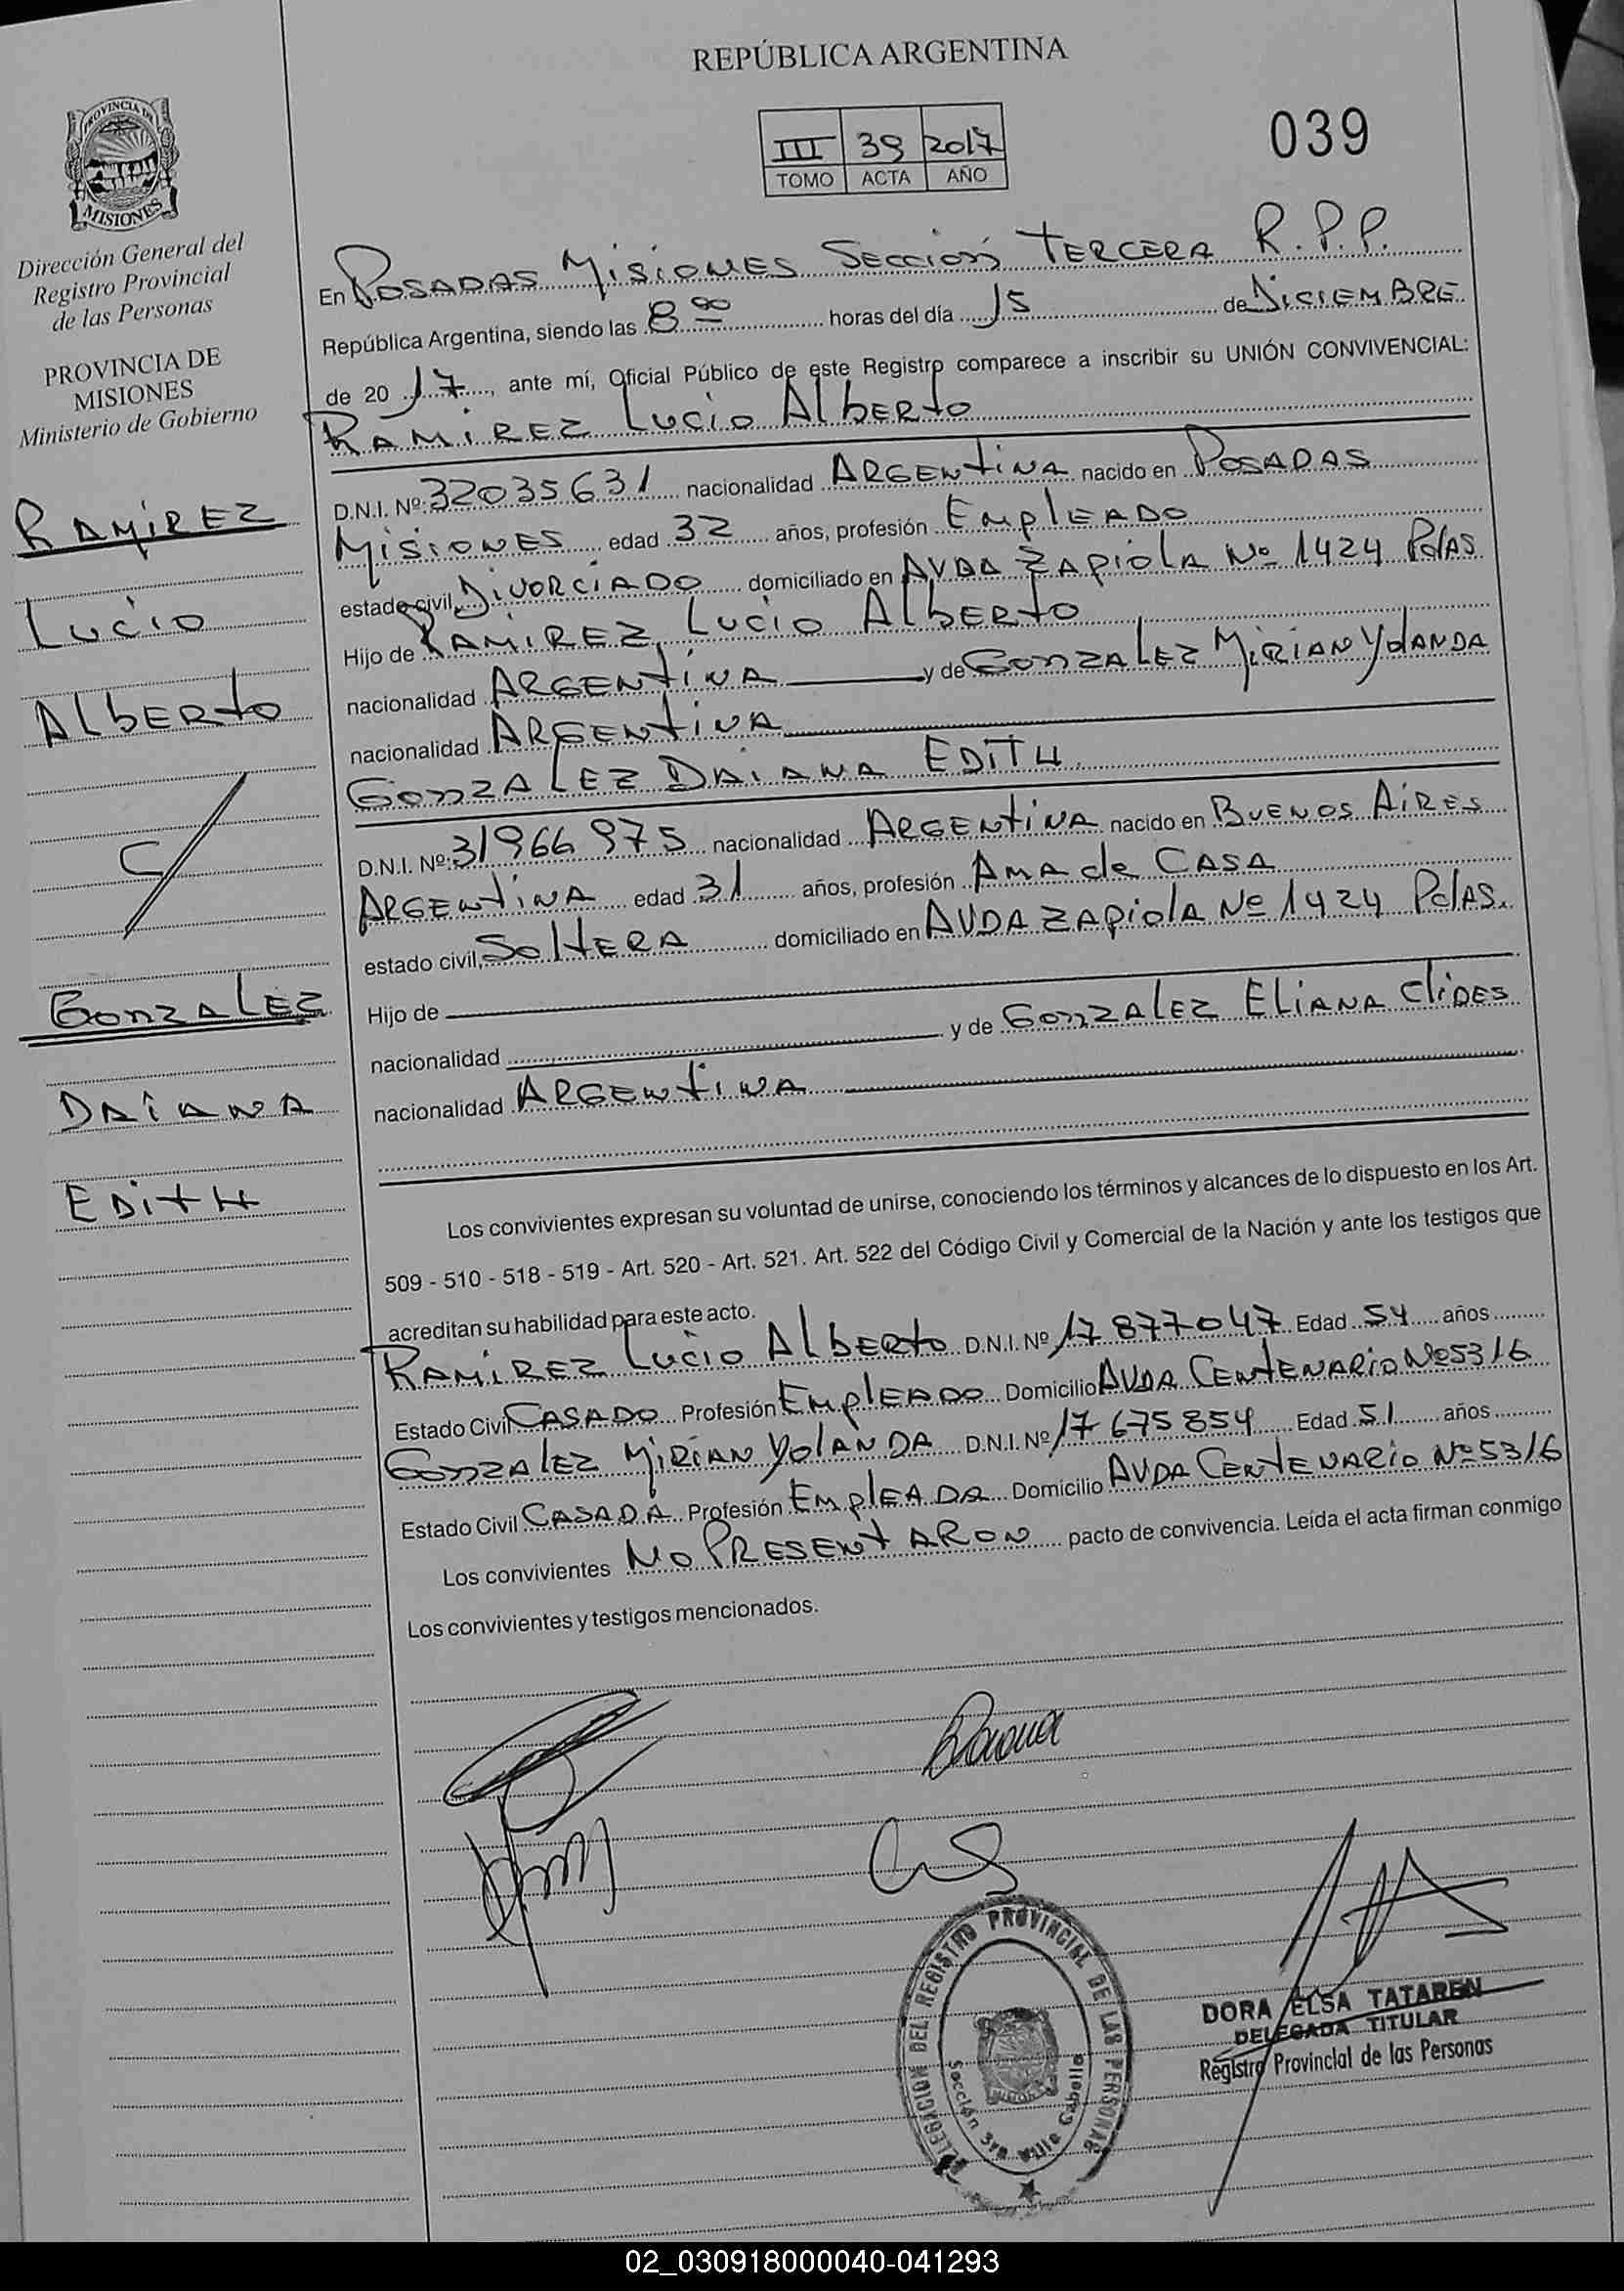 REPÚBLICA ARGENTINA
III 39 2017
TOMO ACTA AÑO
039
PROVINCIA DE
MISIONES
Dirección General del
Registro Provincial
de las Personas
PROVINCIA DE
MISIONES
Ministerio de Gobierno
RAMIREZ
Lucio
AlbERto
C/
GonzAlEz
DAiANA
EDitH
En POSADAS MisiONES SECCión TERCERA R.P.P.
República Argentina, siendo las 8 00 horas del día 15 de DiciEMBRE
de 20 17, ante mí, Oficial Público de este Registro comparece a inscribir su UNIÓN CONVIVENCIAL:
RAMIREZ Lucio AlbERto
D.N.I. Nº: 32035631 nacionalidad ARGENtiNA nacido en POSADAS
MisiONES edad 32 años, profesión EMplEADO
estado civil, DiVORCiADO domiciliado en AVDA ZApiolA Nº 1424 PdAS.
Hijo de RAMIREZ, Lucio AlbERto
nacionalidad ARGENtiNA y de GonzAlEz MiRiAN YolANDA
nacionalidad ARGENtiNA
GonzAlEz DAiANA EDITH
D.N.I. Nº: 31966975 nacionalidad ARGENtiNA nacido en BUENOS AiRES
ARGENtiNA edad 31 años, profesión AMA de CASA
estado civil, SoltERA domiciliado en AVDA ZApiolA Nº 1424 PdAS.
Hijo de
nacionalidad y de GonzAlEz EliANA CliDES
nacionalidad ARGENtiNA
Los convivientes expresan su voluntad de unirse, conociendo los términos y alcances de lo dispuesto en los Art.
509 - 510 - 518 - 519 - Art. 520 - Art. 521. Art. 522 del Código Civil y Comercial de la Nación y ante los testigos que
acreditan su habilidad para este acto.
RAMIREZ Lucio AlbERto D.N.I. Nº 17877047 Edad 54 años
Estado Civil CASADO Profesión EMplEADO Domicilio AVDA CENtENARiO Nº 5316
GonzAlEz MiRiAN YolANDA D.N.I. Nº 17675854 Edad 51 años
Estado Civil CASADA Profesión EMplEADA Domicilio AVDA CENtENARiO Nº 5316
Los convivientes NO PRESENtARON pacto de convivencia. Leída el acta firman conmigo
Los convivientes y testigos mencionados.
Daiana
DELEGACION DEL REGISTRO PROVINCIAL DE LAS PERSONAS
Sección 3ra Villa Cabello
DORA ELSA TATAREN
DELEGADA TITULAR
Registro Provincial de las Personas
02_030918000040-041293